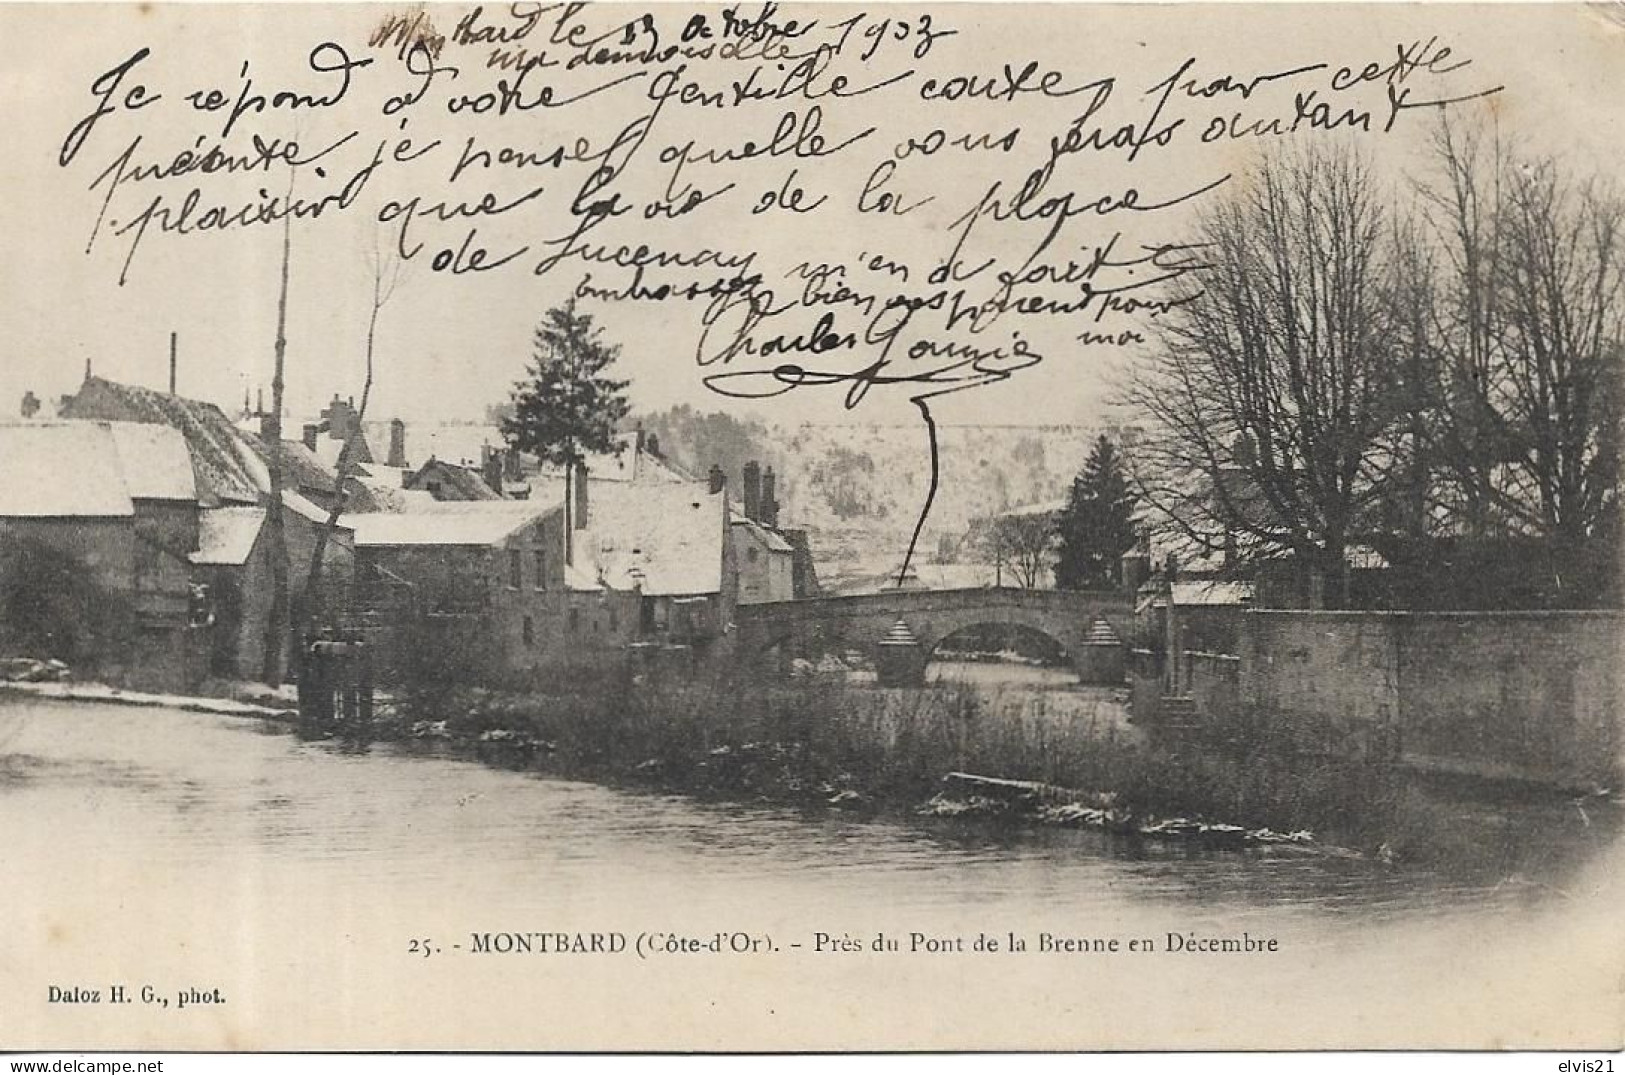 Montbard le 13 Octobre 1903
Mademoiselle
Je répond a votre Gentille carte par cette
présente je pense quelle vous feras autant
plaisir que la vie de la place
de Lucenay m'en a fait.
embrassez bien vos parend pour
moi
Charles
25. - MONTBARD (Côte-d'Or). - Près du Pont de la Brenne en Décembre
Daloz H. G., phot.
elvis21